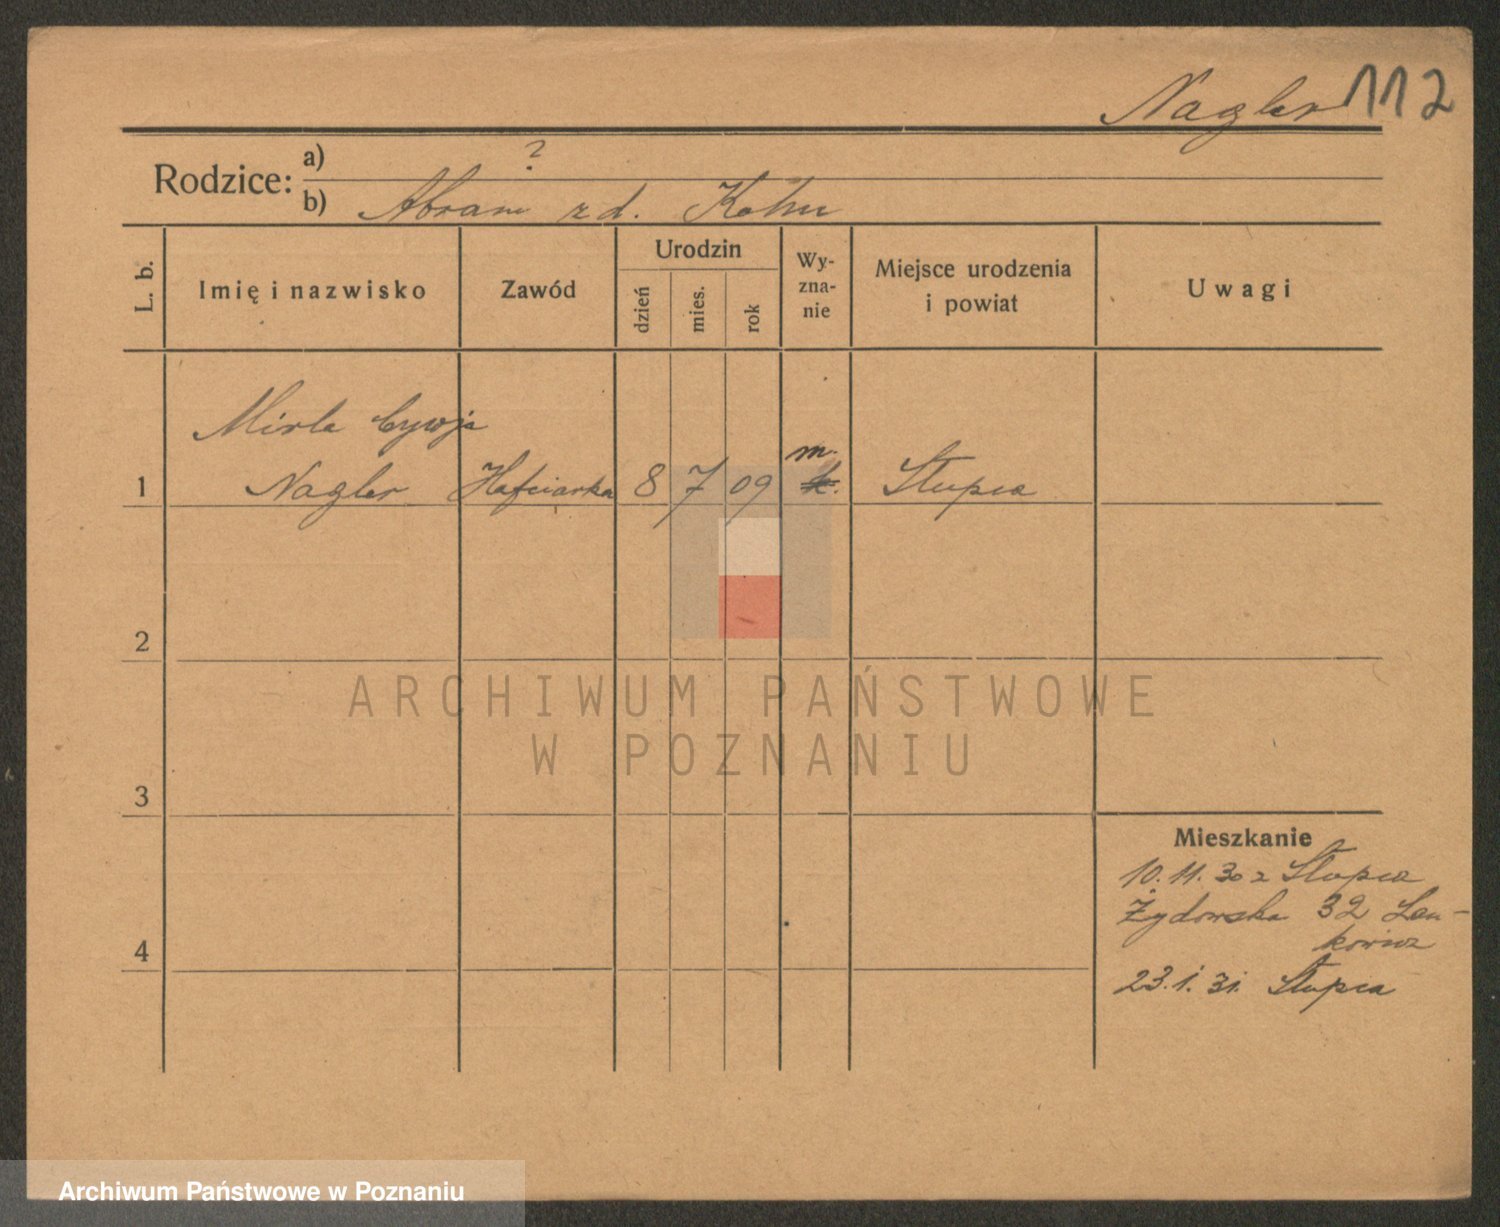 Nagler 112
Rodzice:
a) ?
b) Abram z d. Kohn
L. b.
Imię i nazwisko
Zawód
Urodzin
dzień
mies.
rok
Wy-
zna-
nie
Miejsce urodzenia
i powiat
Uwagi
Mirla Cywja
m.
1 Nagler Hafciarka 8 7 09 Słupca
2
3
4
ARCHIWUM PAŃSTWOWE
W POZNANIU
Mieszkanie
10.11.30 z Słupca
Żydowska 32 Len-
kowicz
23.1.31. Słupca
Archiwum Państwowe w Poznaniu